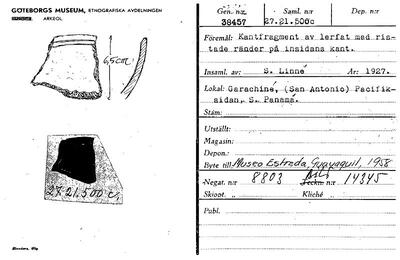 GÖTEBORGS MUSEUM, ETNOGRAFISKA AVDELNINGEN
ARKEOL.
6,5cm.
27.21.500c,
Gen. n:r Saml. n:r Dep. n:r
38457 27.21.500c
Föremål: Kantfragment av lerfat med ris-
tade ränder på insidans kant.
Insaml. av: S. Linné År: 1927.
Lokal: Garachiné, (San Antonio) Pacifik-
sidan, S. Panamá.
Stam:
Utställt:
Magasin:
Depon.:
Byte till Museo Estrada, Guayaquil, 1958
Negat. n:r 8803 14345
Skiopt. „ Kliché „
Publ.